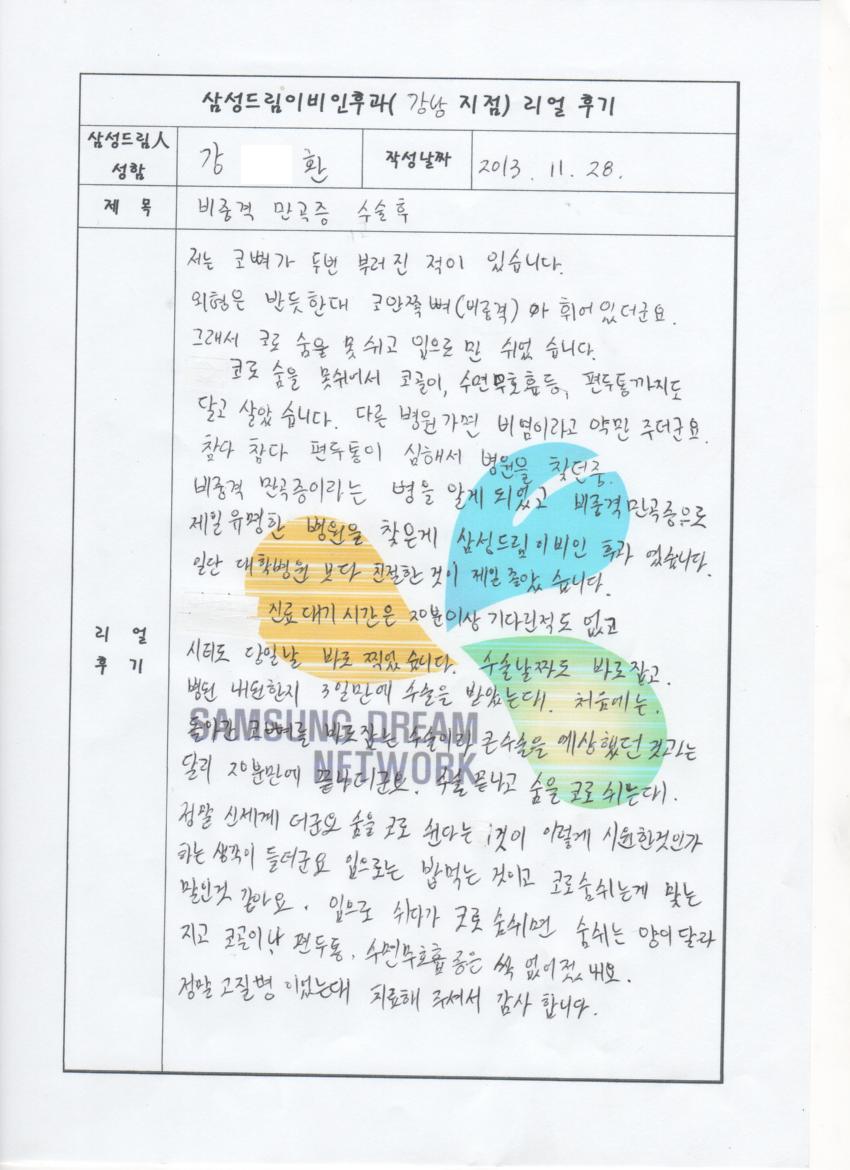 삼성드림이비인후과( 강남 지점) 리얼 후기
삼성드림人 성함
강 환
작성날짜
2013. 11. 28.
제 목
비중격 만곡증 수술후
리 얼 후 기
저는 코뼈가 두번 부러진 적이 있습니다.
외형은 반듯한대 코안쪽뼈(비중격)가 휘어있더군요.
그래서 코로 숨을 못쉬고 입으로만 쉬었습니다.
코로 숨을 못쉬어서 코골이, 수면무호흡등, 편두통까지도
달고 살았습니다. 다른 병원가면 비염이라고 약만 주더군요.
참다 참다 편두통이 심해서 병원을 찾던중.
비중격 만곡증이라는 병을 알게 되었고 비중격만곡증으로
제일유명한 병원을 찾은게 삼성드림이비인후과 였습니다.
일단 대학병원보다 친절한 것이 제일 좋았습니다.
진료대기시간은 20분이상 기다린적도 없고
시티도 당일날 바로 찍었습니다. 수술날짜도 바로잡고.
병원 내원한지 3일만에 수술을 받았는대. 처음에는.
돌아간 코뼈를 바로잡는 수술이라 큰수술을 예상했던 것과는
달리 20분만에 끝나더군요. 수술끝나고 숨을 코로 쉬는대.
SAMSUNG DREAM
NETWORK
정말 신세계더군요 숨을 코로 쉰다는 것이 이렇게 시원한것인가
하는 생각이 들더군요 입으로는 밥먹는 것이고 코로숨쉬는게 맞는
말인것 같아요. 입으로 쉬다가 코로 숨쉬면 숨쉬는 양이 달라
지고 코골이나 편두통, 수면무호흡증은 싹 없어졌네요.
정말고질병이었는대 치료해 주셔서 감사합니다.